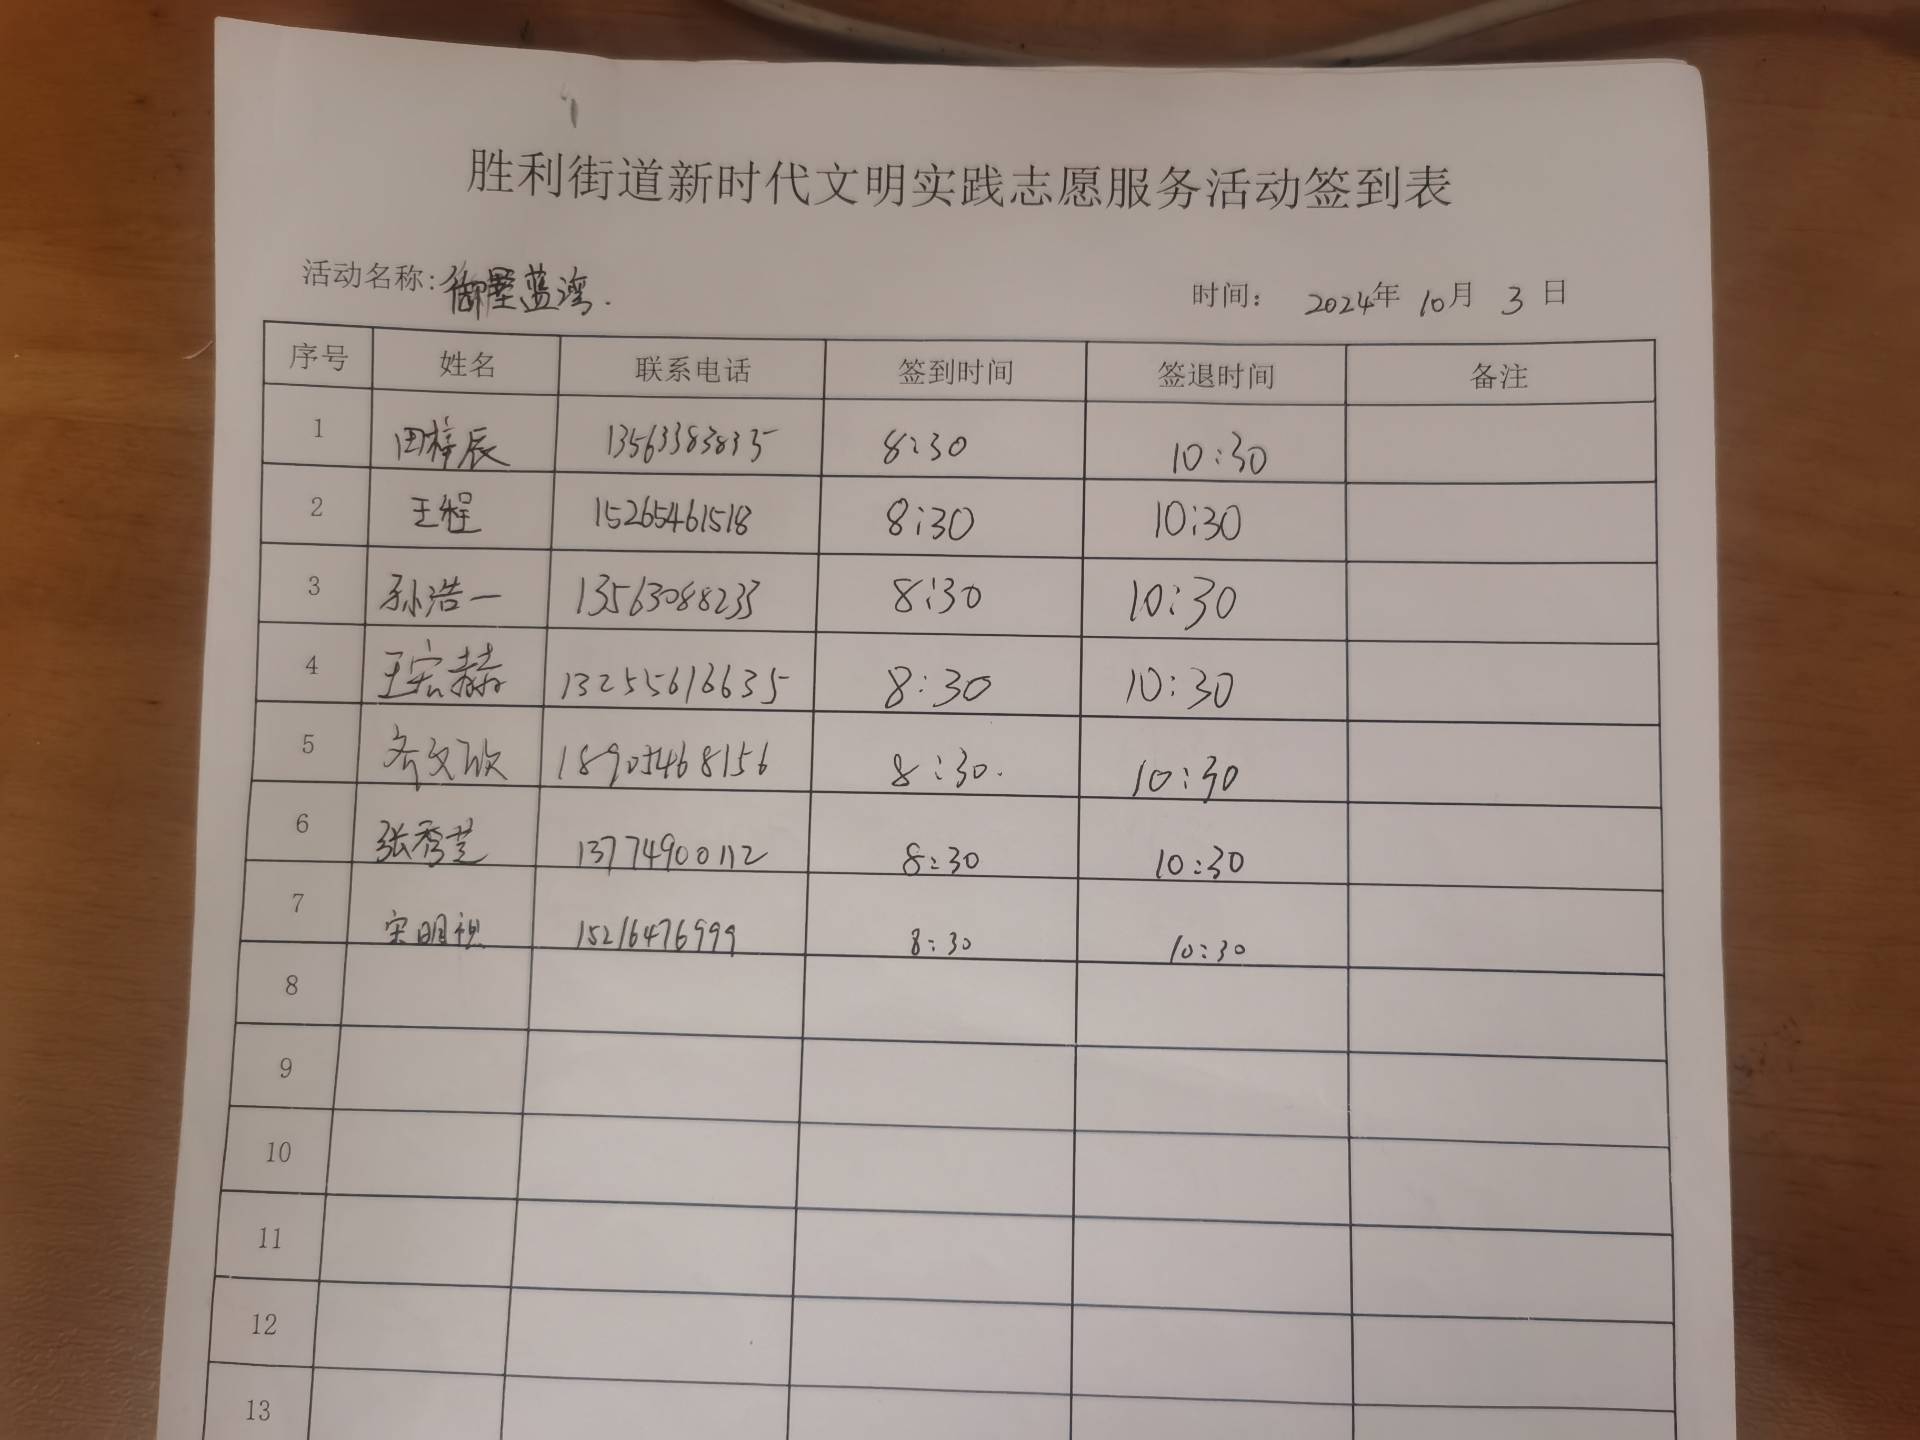 胜利街道新时代文明实践志愿服务活动签到表
活动名称:御墅蓝湾. 时间: 2024年 10月 3日
序号 姓名 联系电话 签到时间 签退时间 备注
1 田梓辰 13563383835 8:30 10:30
2 王程 15265461518 8:30 10:30
3 孙浩一 13563088233 8:30 10:30
4 王宏赫 13255616635 8:30 10:30
5 齐文欣 18905468156 8:30. 10:30
6 张秀芝 13774900112 8:30 10:30
7 宋明 15216476999 8:30 10:30
8
9
10
11
12
13